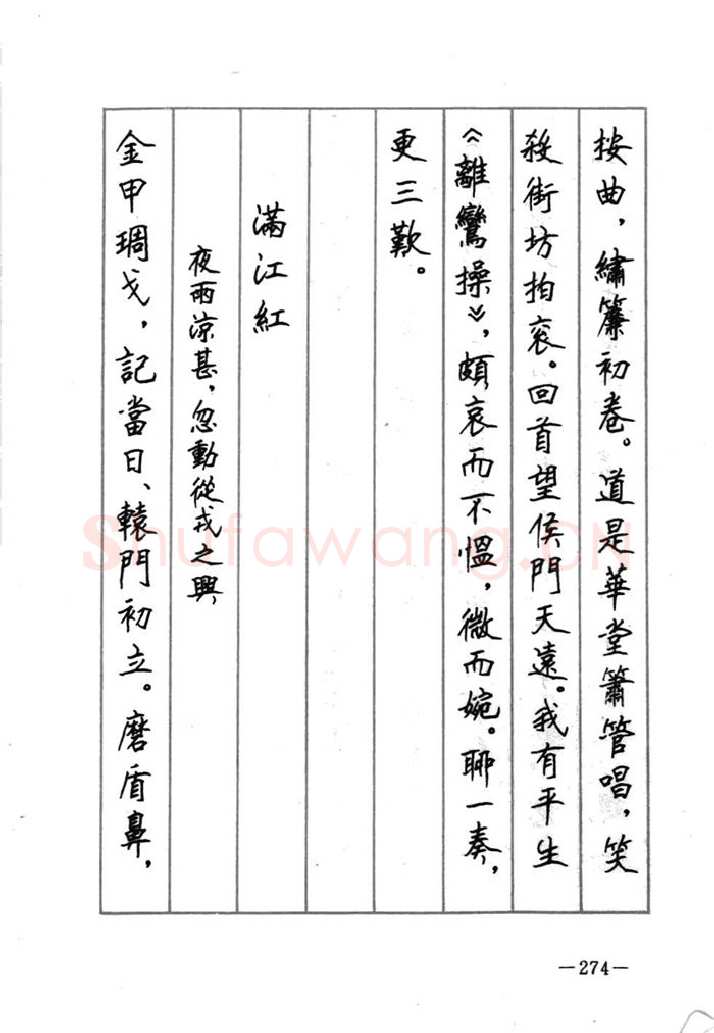 按曲，繡簾初卷。道是華堂簫管唱，笑
殺街坊拍衮。回首望侯門天遠。我有平生
《離鸞操》，頗哀而不愠，微而婉。聊一奏，
更三歎。
滿江紅
夜雨凉甚，忽動從戎之興
金甲琱戈，記當日、轅門初立。磨盾鼻，
Shufawang.CN
—274—